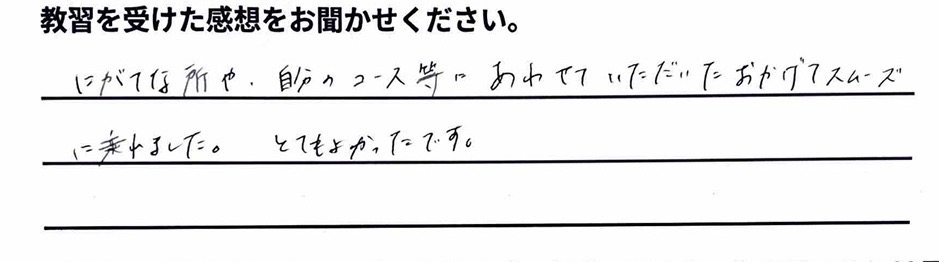 教習を受けた感想をお聞かせください。
にがてな所や、自分のコース等にあわせていただいたおかげでスムーズ
に乗れました。 とてもよかったです。